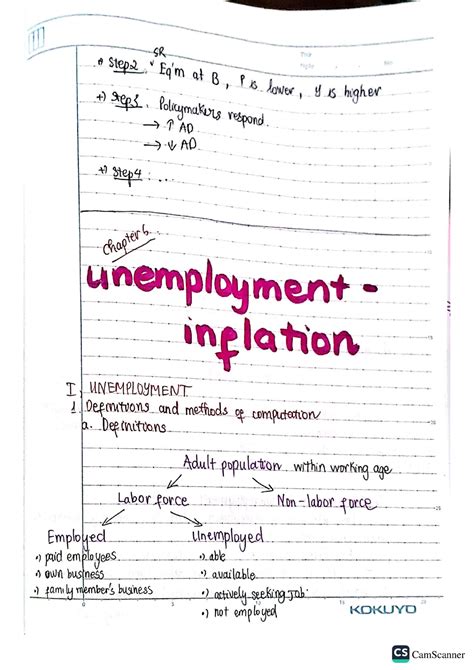 SR
•) Step2: Eq'm at B, P is lower, Y is higher
+) Step3: Policymakers respond.
→ ↑ AD
→ ↓ AD
+) Step4: ...
Chapter 6:
unemployment -
inflation
I. UNEMPLOYMENT
1. Definitions and methods of computation
a. Definitions
Adult population within working age
Labor force Non-labor force
Employed Unemployed
•) paid employees •) able
•) own business •) available
•) family member's business •) actively seeking job.
•) not employed
KOKUYO
CS CamScanner